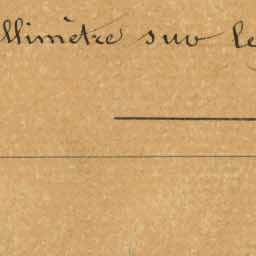 llimètre sur le